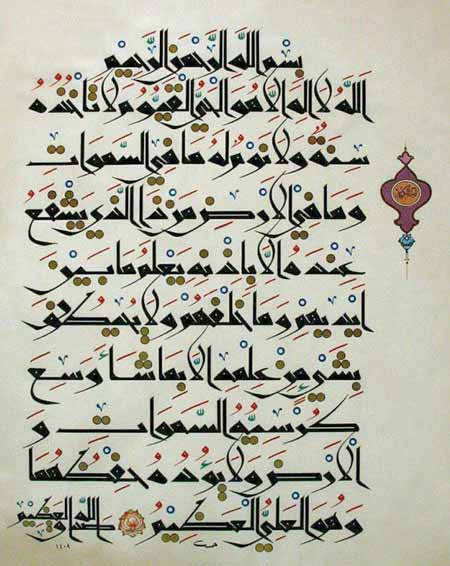 بسم الله الرحمن الرحيم
الله لا إله إلا هو الحي القيوم لا تأخذه
سنة ولا نوم له ما في السموات
وما في الأرض من ذا الذي يشفع
عنده إلا بإذنه يعلم ما بين
أيديهم وما خلفهم ولا يحيطون
بشيء من علمه إلا بما شاء وسع
كرسيه السموات و
الأرض ولا يؤده حفظهما
وهو العلي العظيم
صدق الله العظيم
١٤٠٩